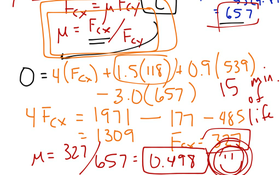 F_cx = μ F_cy
μ = F_cx / F_cx
657
0 = 4(F_cx) + 1.5(118) + 0.9(539)
- 3.0(657)
15 min. of life
4F_cx = 1971 - 177 - 485
= 1309
F_cx = 327
μ = 327/657 = 0.498